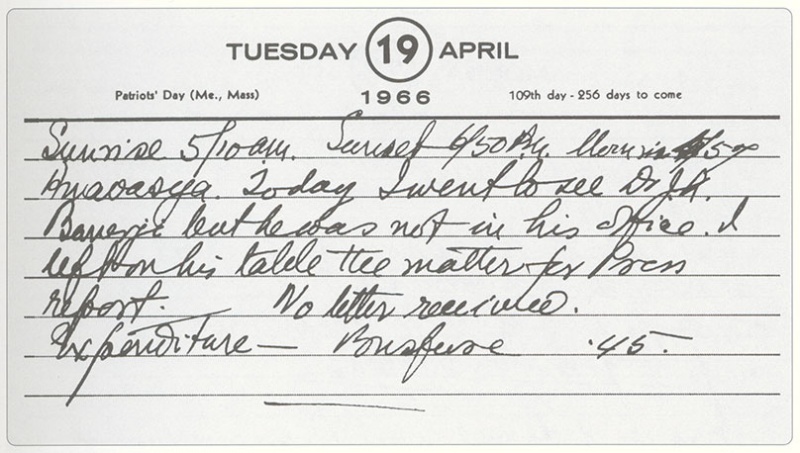 TUESDAY 19 APRIL
Patriots' Day (Me., Mass) 1966 109th day - 256 days to come
Sunrise 5/10 a.m. Sunset 6/50 P.M.
Amavasya. Today I went to see Dr. J.R.
Banerji but he was not in his office. I
left on his table the matter for Press
report. No letter received.
Expenditure — Busfare .45